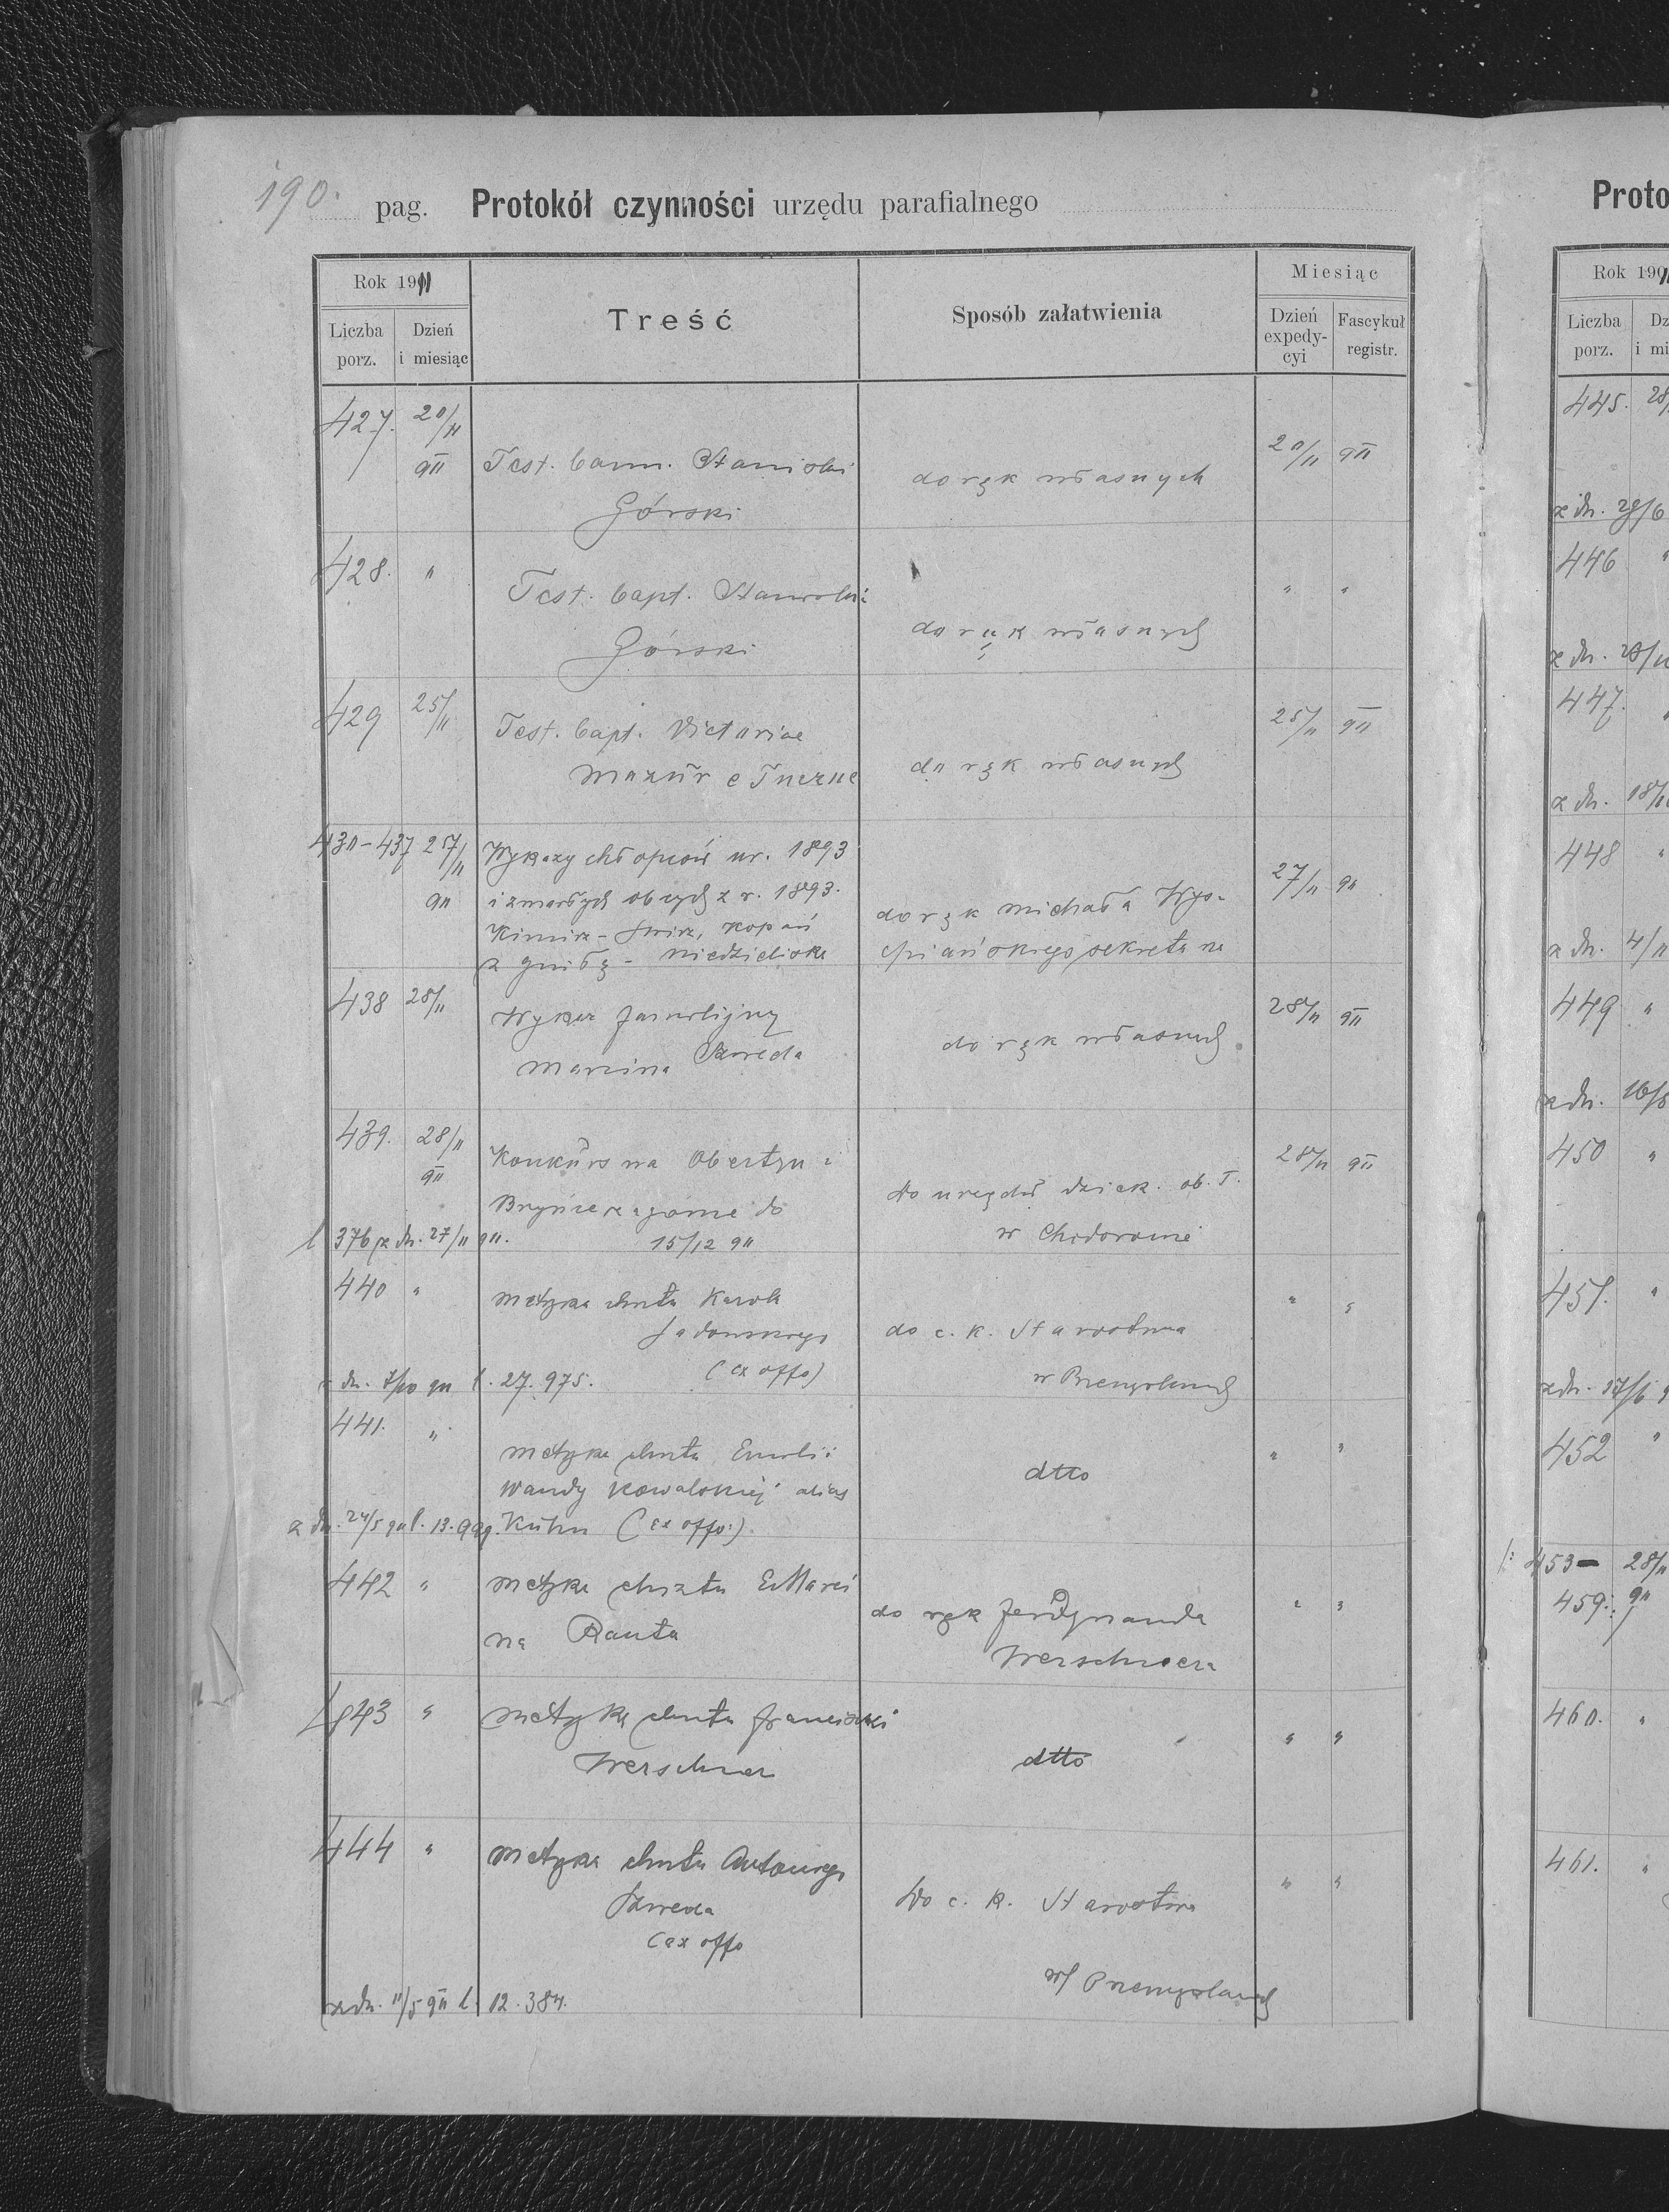 190. pag. Protokół czynności urzędu parafialnego
Rok 1911
Treść
Sposób załatwienia
Miesiąc
Liczba porz.
Dzień i miesiąc
Dzień expedycyi
Fascykuł registr.
427. 20/11 911 Test. bann. Stanislai
Górski
do rąk własnych
20/11 911
428. " Test. bapt. Stanislai
Górski
do rąk własnych
" "
429 25/11 Test. bapt. Victoriae
Mazur
do rąk własnych
25/11 911
430-437 25/11 911 Wykazy chłopców ur. 1893
i zmarłych obcych z r. 1893.
Kimirz - Świrz, Kopań
z gniłą - Niedzieliska
do rąk Michała Wys-
piańskiego sekretarza
27/11 911
438 28/11 Wykaz familijny
Marcina Szweda
do rąk własnych
28/11 911
439. 28/11 911 Konkurs na Obertyn i
Bryńce zagórne do
15/12 911
l 376 z dn. 27/11 911.
Do urzędu dziek. ob. ł.
w Chodorowie
28/11 911
440 " Metryka chrztu Karola
Sadowskiego
(ex offo)
z dn. 911 l. 27.975.
do c. k. Starostwa
w Przemyślanach
441. " Metryka chrztu Emilii
Wandy Kowalskiej alias
Kuhn (ex offo:)
z dn. 24/5 911 l. 13.999.
dtto
" "
442 " Metryka chrztu Marci
na Rauta
do rąk Ferdynanda
Werschnera
" "
443 " Metryka chrztu Franciszki
Werschner
dtto
" "
444 " Metryka chrztu Antoniego
Szweda
(ex offo
z dn. 11/5 911 l. 12.384.
Do c. k. Starostwa
w Przemyślanach
" "
Proto
Rok 1911
Liczba porz.
Dz
i mi
445. 28/
z dn. 28/6
446 "
z dn. 28/11
447.
z dn. 18/11
448 "
z dn. 4/11
449 "
z dn. 16/8
450 "
451. "
z dn. 17/6
452 "
453- 28/11
459. 911
460. "
461. "